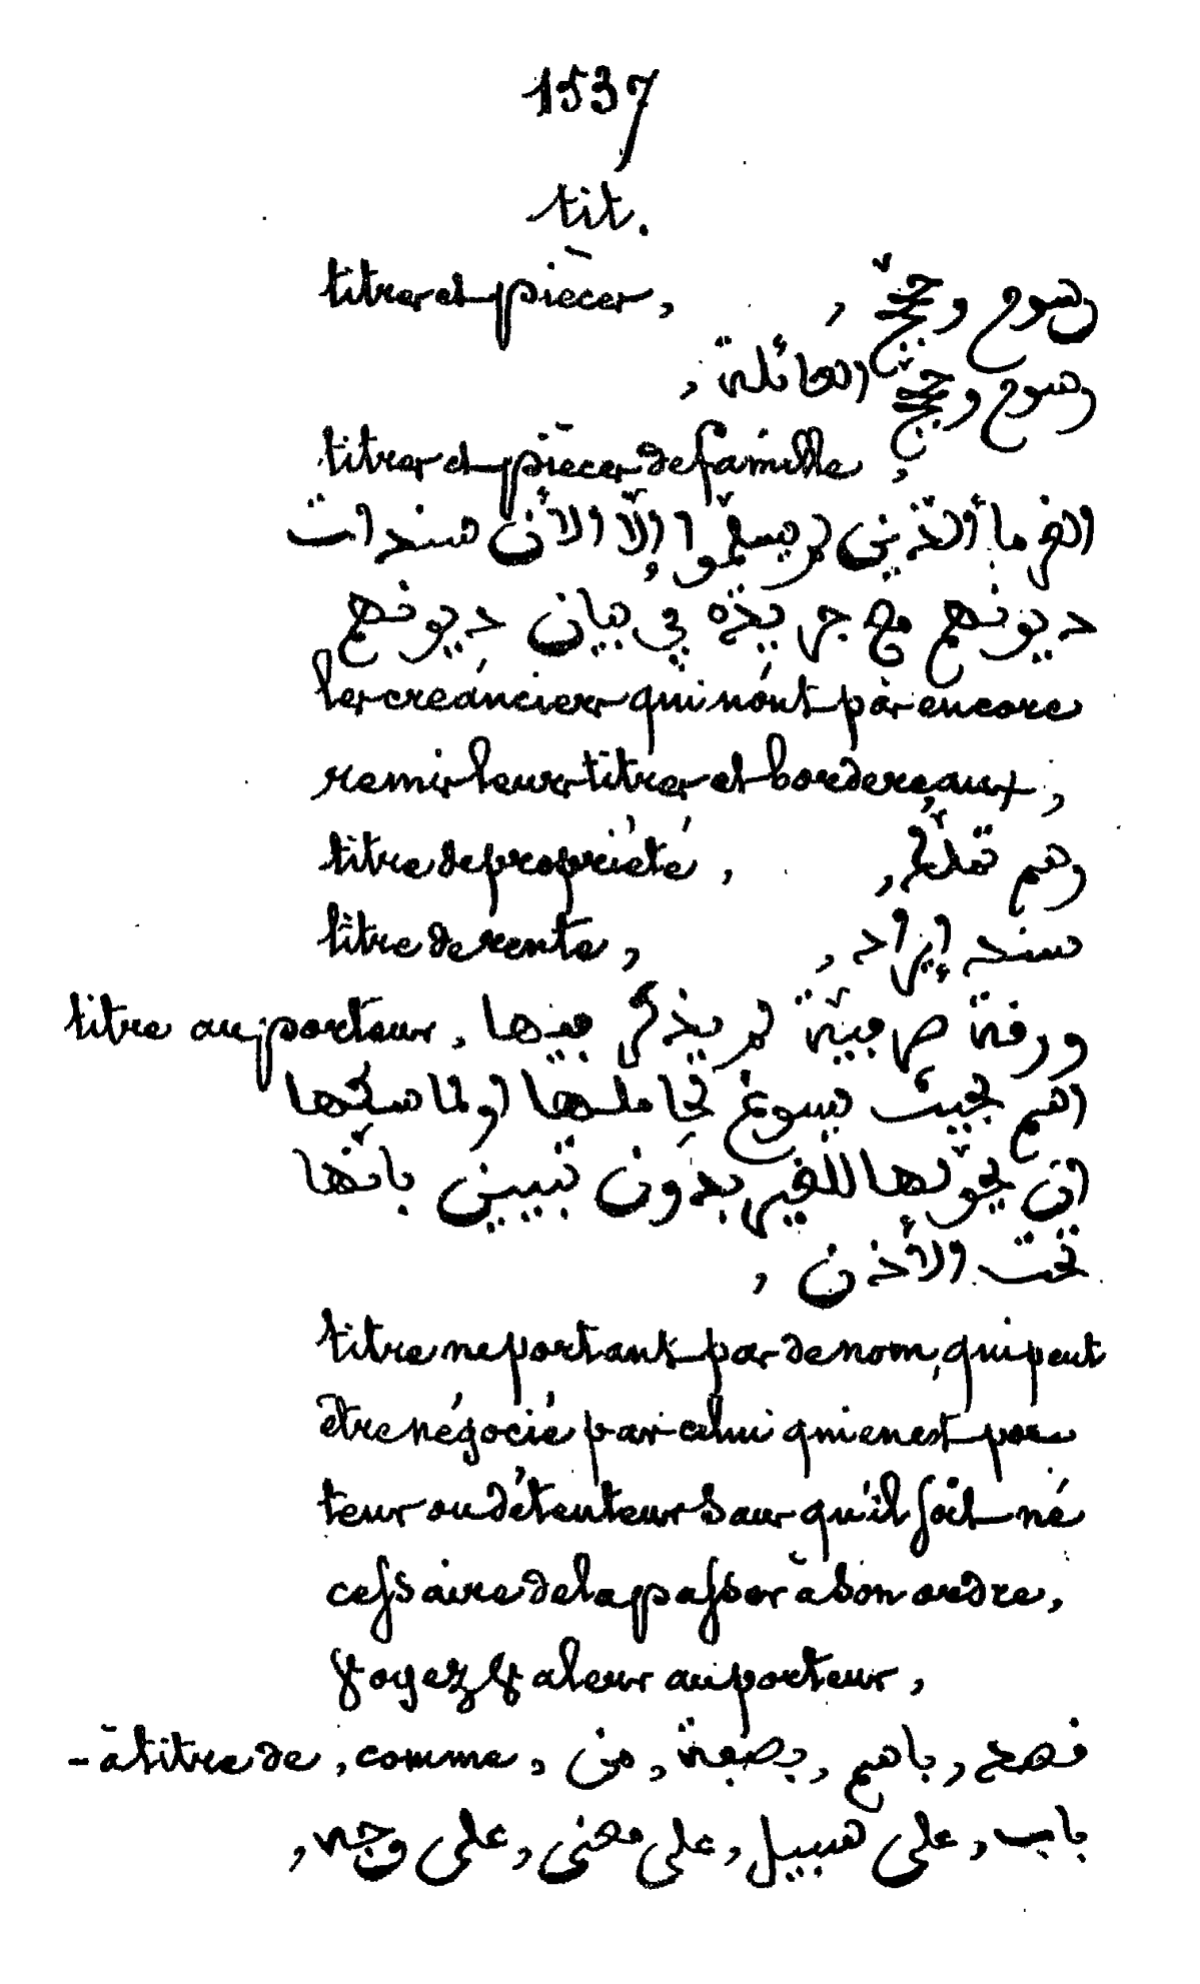 1537
tit.
titres et pièces, رسوم وحججّ,
رسوم وحججّ العائلة,
titres et pièces de famille,
الغرماء الّذين لم يسلّموا إلّا الأن سندات
ديونهم مع جريدة في بيان ديونهم
les créanciers qui n'ont pas encore
remis leurs titres et bordereaux,
titre de propriété, رسم تملّك,
titre de rente, سند إيراد,
titre au porteur, ورقة صرفيّة لم يذكر فيها
اسم بحيث يسوغ لحاملها او لماسكها
ان يحوّلها للغير بدون تبيين بانّها
تحت الأذن,
titre ne portant pas de nom, qui peut
être négocié par celui qui en est por
teur ou détenteur sans qu'il soit né
cessaire de la passer à son ordre,
Voyez Valeur au porteur,
- à titre de, comme, قصد, باسم, بصفة, من,
باب, على سبيل, على معنى, على وجه,